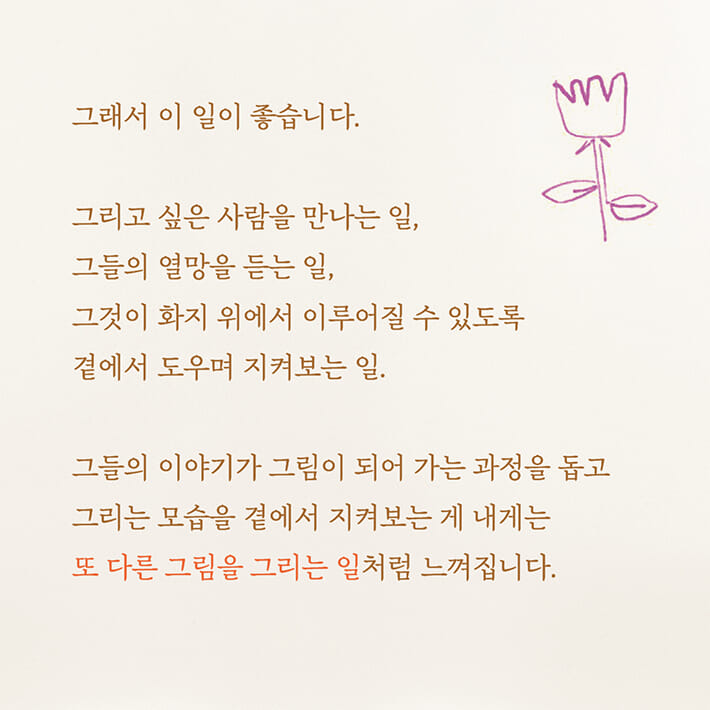 그래서 이 일이 좋습니다.
그리고 싶은 사람을 만나는 일,
그들의 열망을 듣는 일,
그것이 화지 위에서 이루어질 수 있도록
곁에서 도우며 지켜보는 일.
그들의 이야기가 그림이 되어 가는 과정을 돕고
그리는 모습을 곁에서 지켜보는 게 내게는
또 다른 그림을 그리는 일처럼 느껴집니다.